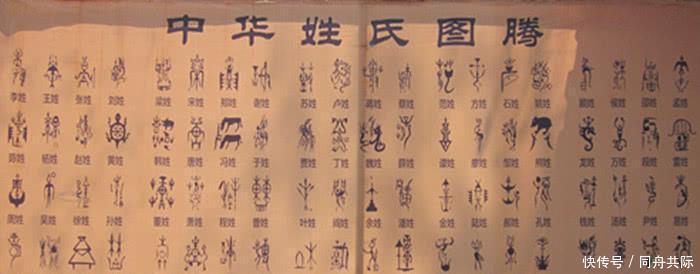 中华姓氏图腾
李姓 王姓 张姓 刘姓 梁姓 宋姓 郑姓 谢姓 苏姓 卢姓 蒋姓 蔡姓 范姓 方姓 石姓 姚姓 顾姓 侯姓 邵姓 孟姓
陈姓 杨姓 赵姓 黄姓 韩姓 唐姓 冯姓 于姓 贾姓 丁姓 魏姓 薛姓 谭姓 廖姓 邹姓 熊姓 龙姓 万姓 段姓 雷姓
周姓 吴姓 徐姓 孙姓 董姓 萧姓 程姓 曹姓 叶姓 阎姓 余姓 潘姓 金姓 陆姓 郝姓 孔姓 钱姓 汤姓 尹姓 易姓
快传号 / 同舟共际